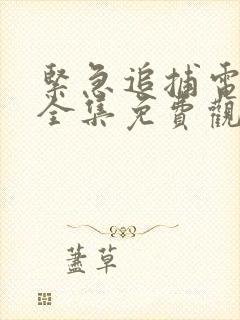 緊急追捕電
全集免費觀
蓋草